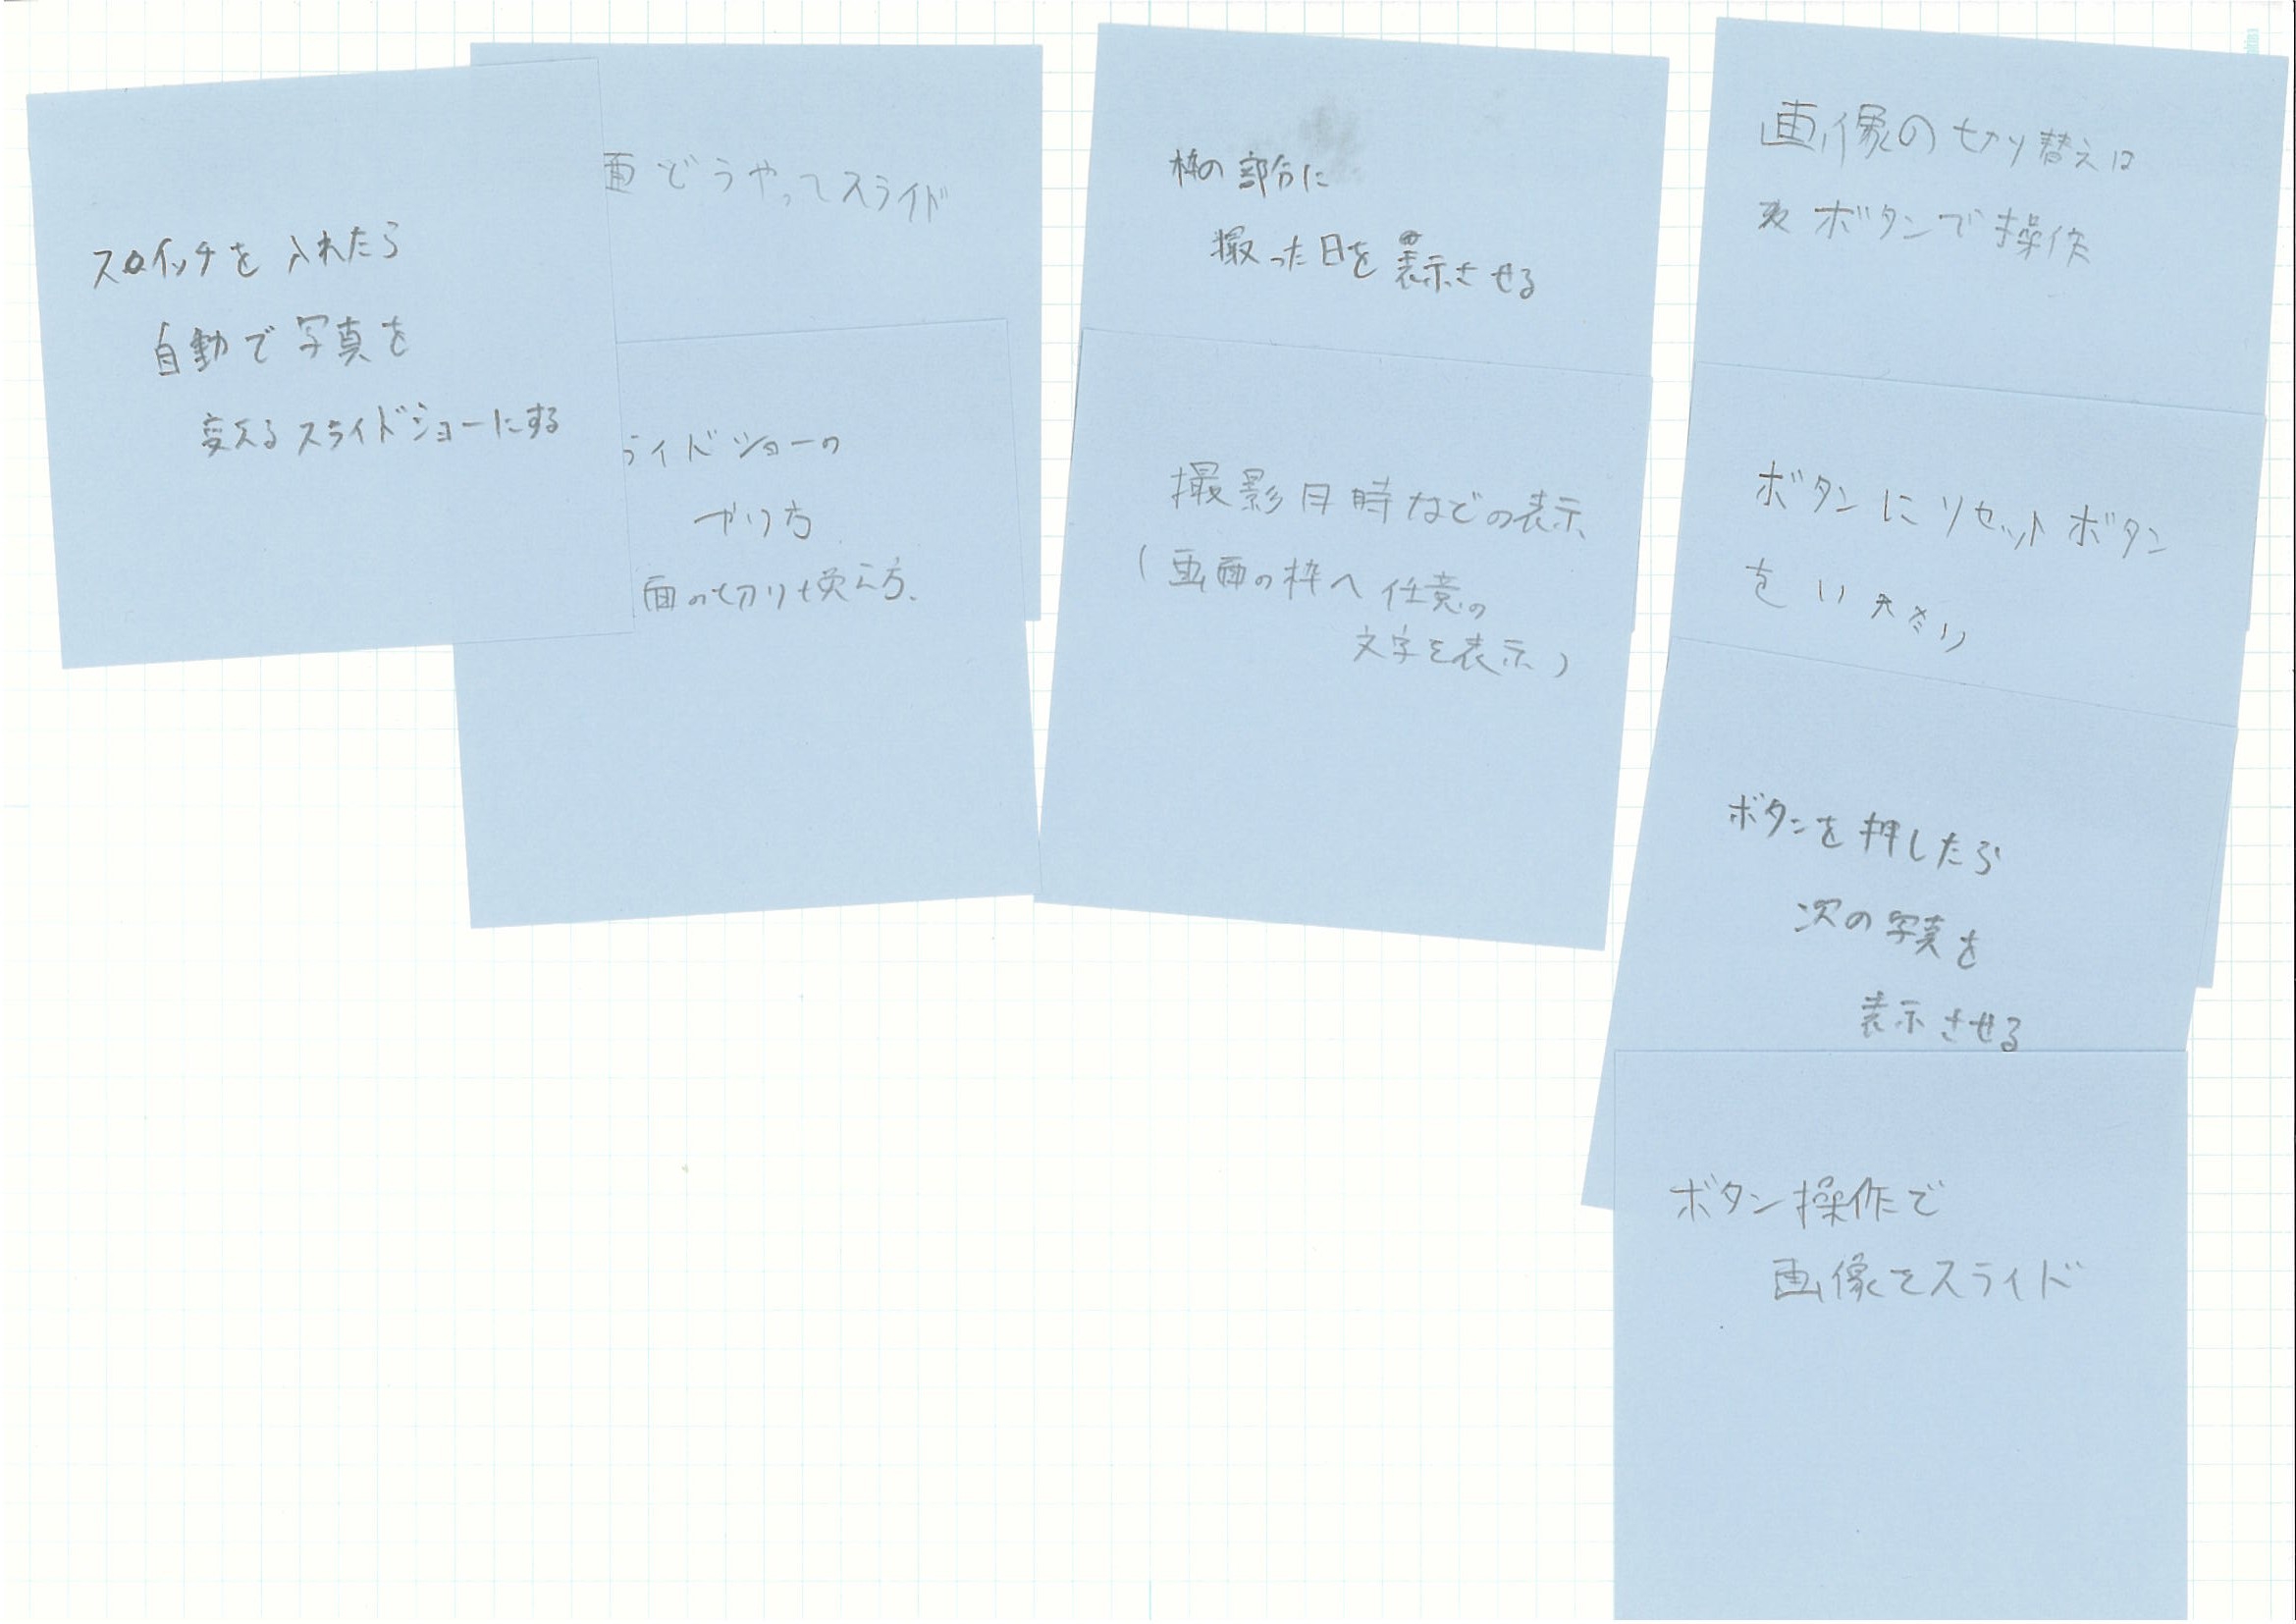 スイッチを入れたら
自動で写真を
変えるスライドショーにする
面どうやってスライド
ライドショーの
やり方
面の切り換え方.
枠の部分に
撮った日を表示させる
撮影日時などの表示
(画面の枠へ任意の
文字を表示)
画像の切り替えは
ボタンで操作
ボタンにリセットボタン
をい
ボタンを押したら
次の写真を
表示させる
ボタン操作で
画像をスライド